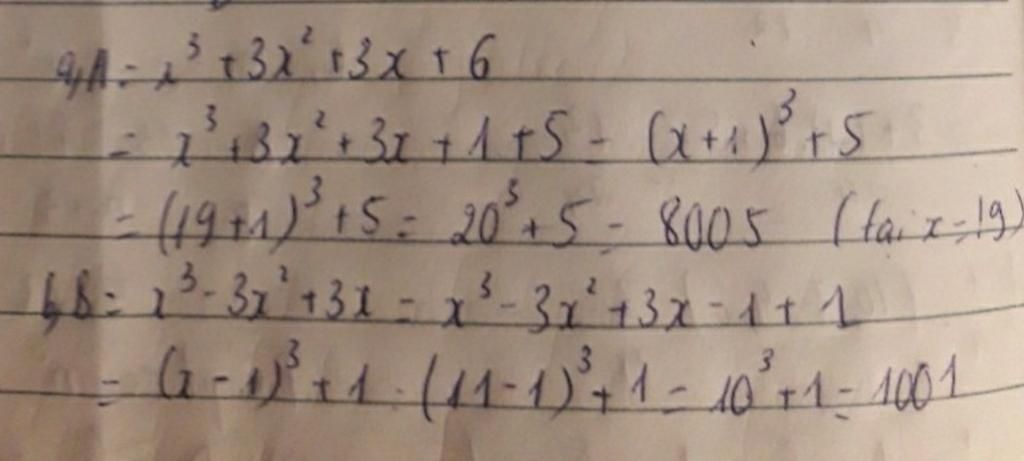 a, A = x³ + 3x² + 3x + 6
= x³ + 3x² + 3x + 1 + 5 = (x+1)³ + 5
= (19+1)³ + 5 = 20³ + 5 = 8005 (tại x = 19)
b, B = x³ - 3x² + 3x = x³ - 3x² + 3x - 1 + 1
= (x - 1)³ + 1 = (11-1)³ + 1 = 10³ + 1 = 1001